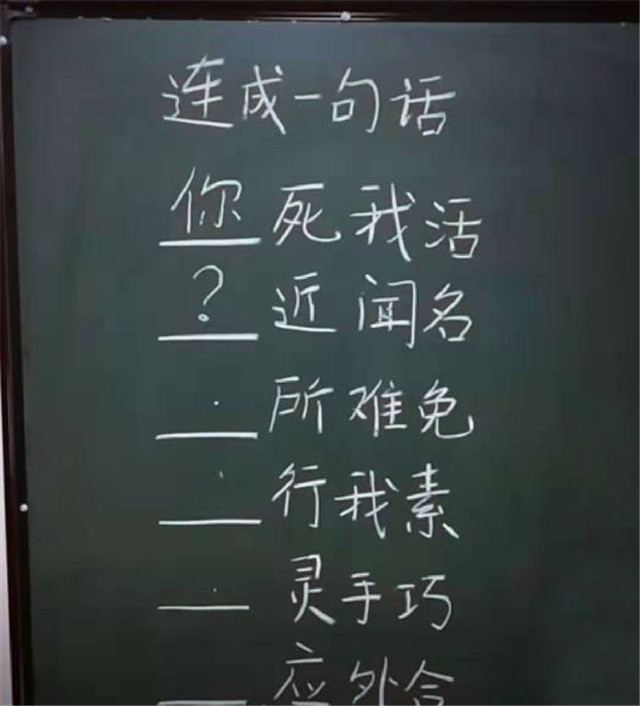 连成一句话
你死我活
？近闻名
所难免
行我素
灵手巧
应外合